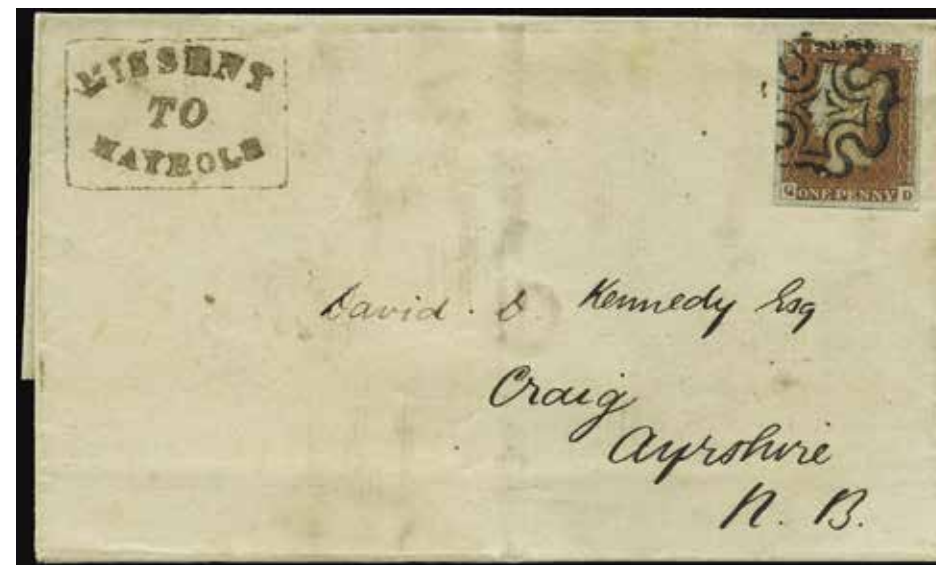 MISSENT
TO
MAYBOLE
ONE PENNY D
David . D. Kennedy Esq
Craig
Ayrshire
N. B.